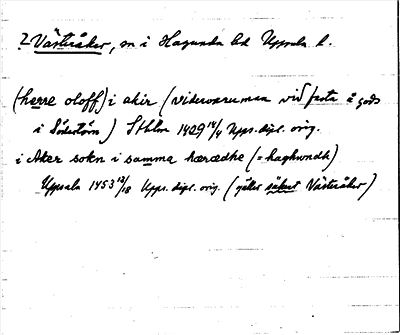 2 Västeråker, sn i Hagunda hd Uppsala l.
(herre oloff) i akir (vidervaruman vid fasta å gods
i Södertörn) Sthlm 1429 14/4 Upps. dipl. orig.
i Aker sokn i samma hærædhe (= haghwndh)
Uppsala 1453 13/18 Upps. dipl. orig. (gäller säkert Västeråker)